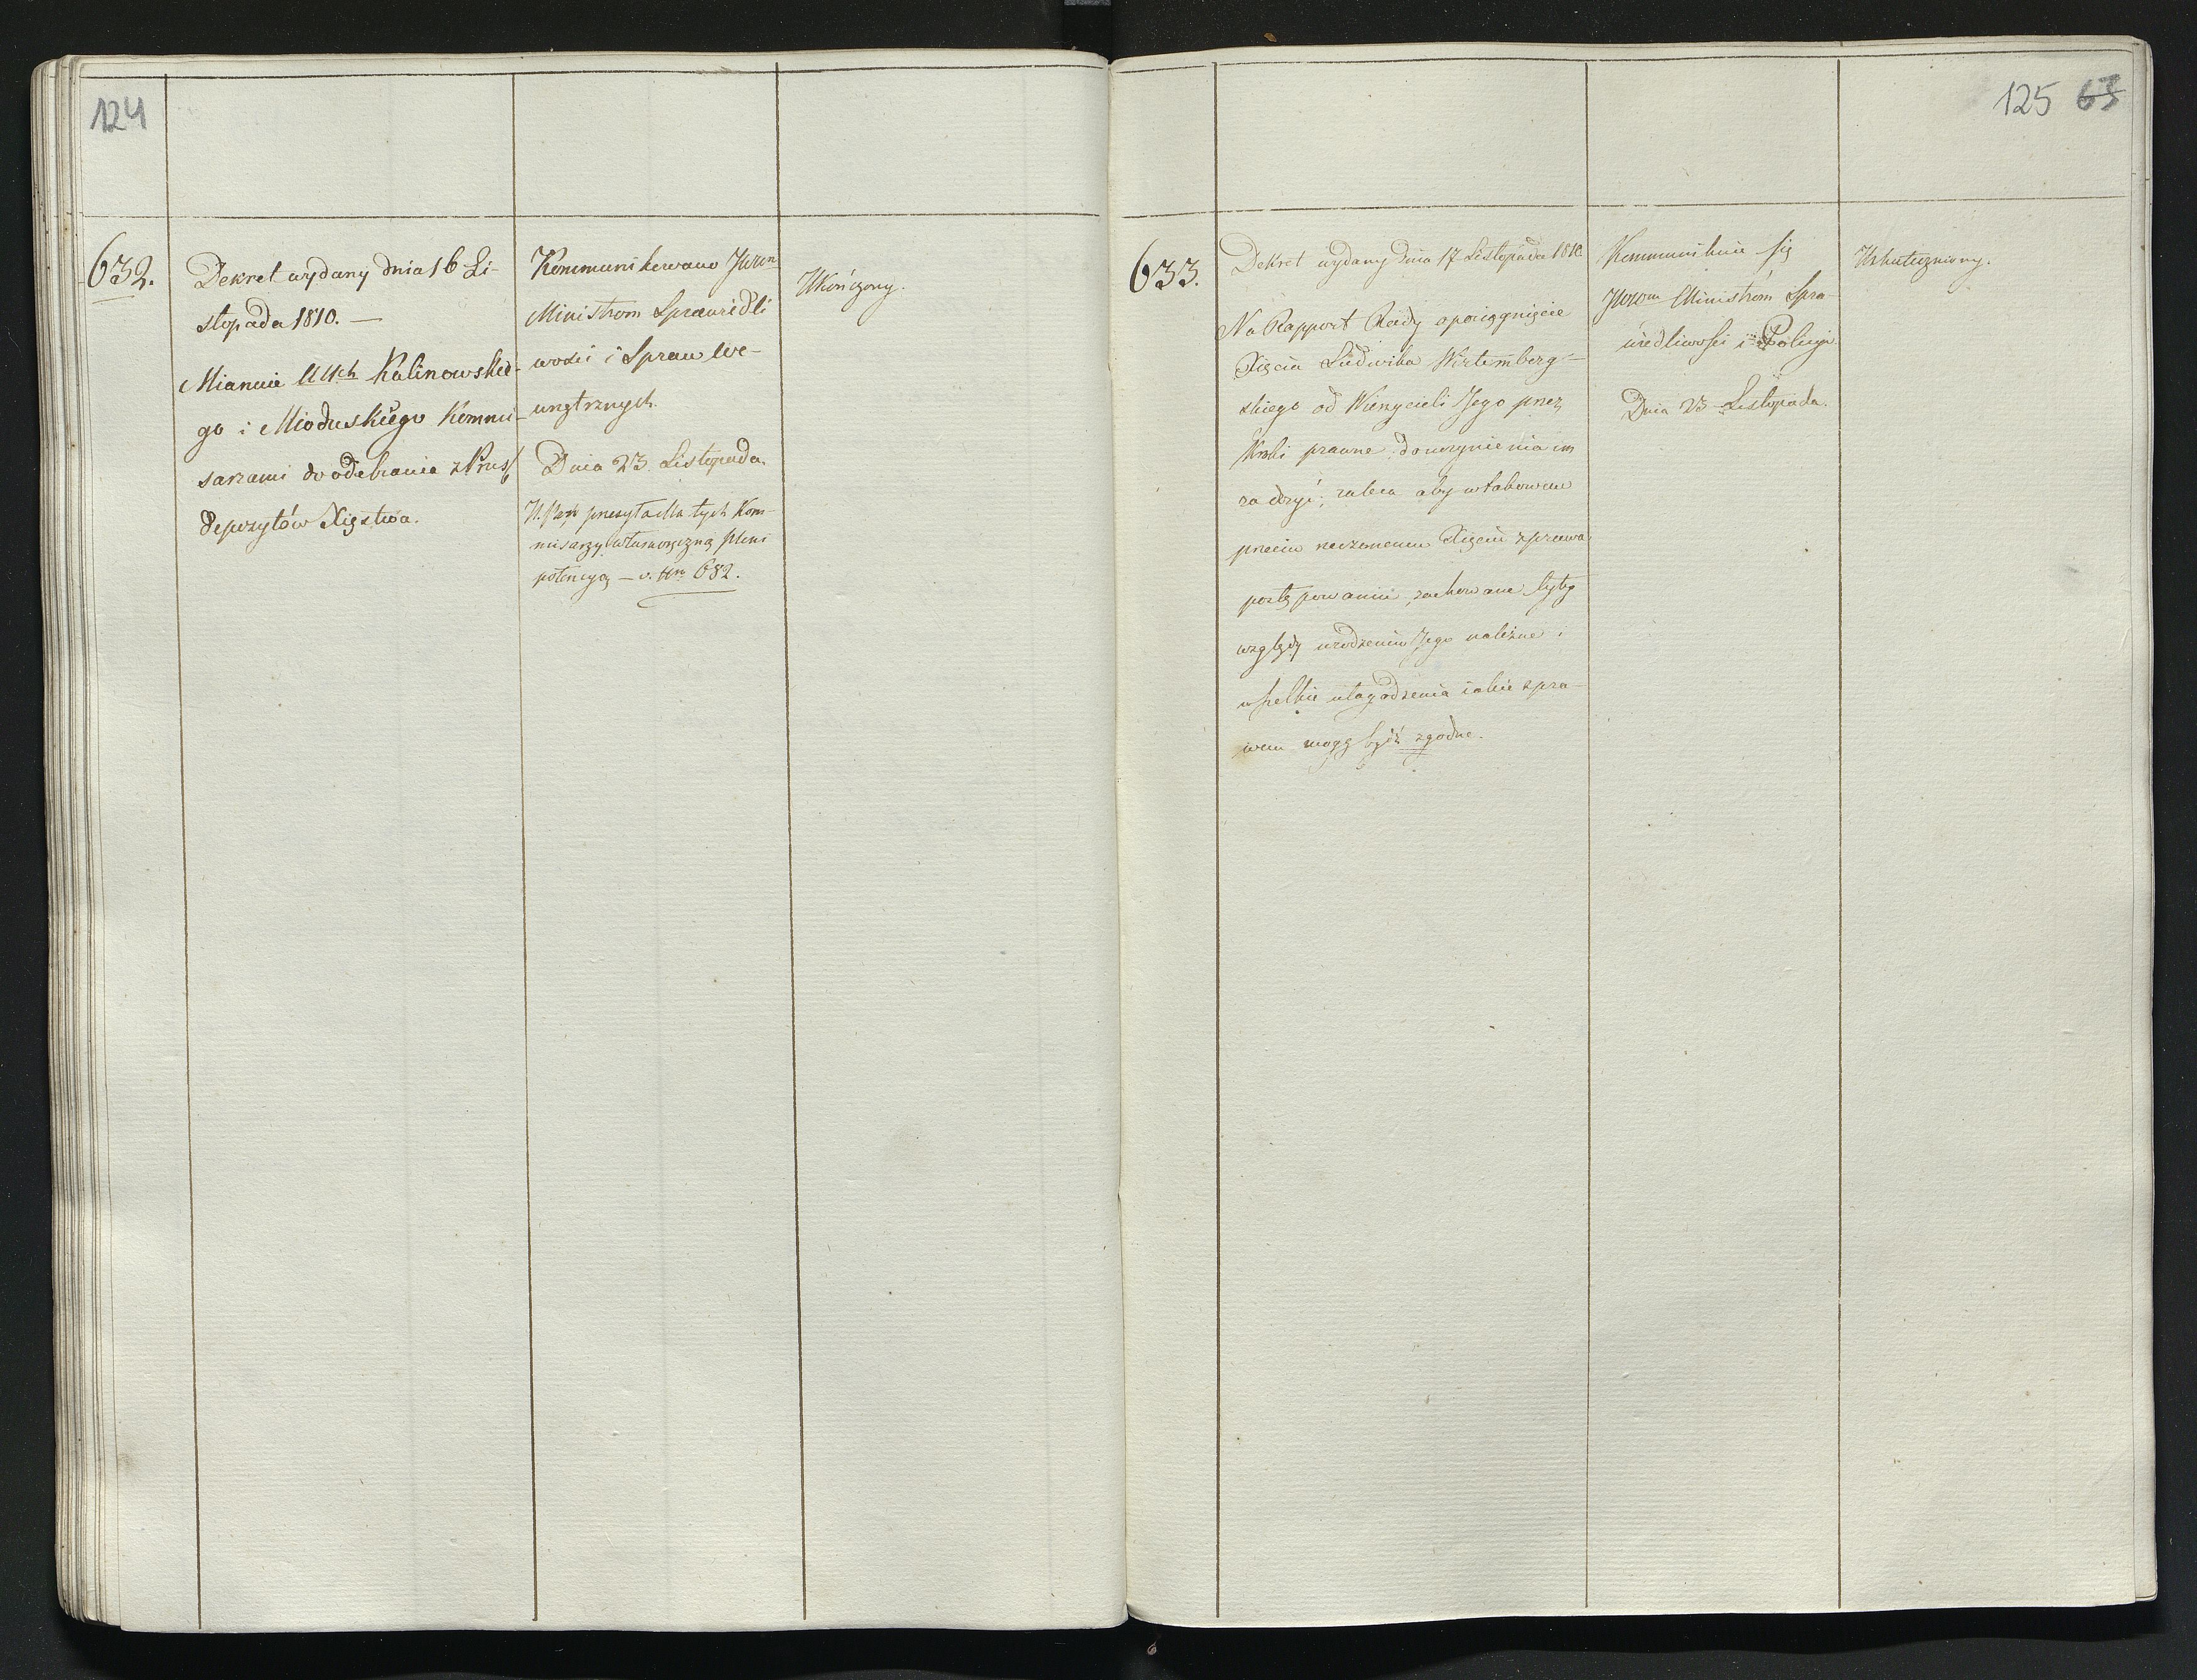 124
632.
Dekret wydany dnia 16 Li-
stopada 1810. —
Mianuie UUch Kalinowskie-
go i Mioduskiego Kommi-
sarzami do odebrania z Pruss
depozytów Xięstwa.
Kommunikowano JWWn
Ministrom Sprawiedli
wości i Spraw We-
wnętrznych.
Dnia 23. Listopada.
przesyła dla tych Kom-
misarzy własnoręczną pleni
potencyą — v. Nro 682.
Ukończony.
125 63
633.
Dekret wydany dnia 17 Listopada 1810
Na Rapport Rady o pociągnięcie
Xięcia Ludwika Wirtemberg-
skiego od Wierzycieli Jego przez
Kroki prawne do uczynienia im
zadosyć; zaleca aby w takowem
przeciw rzeczonemu Xięciu z prawa
postępowaniu, zachowane były
względy urodzeniu Jego należne i
wszelkie ułagodzenia iakie z pra-
wem mogą bydź zgodne.
Kommunikuie się
JWWm Ministrom Spra-
wiedliwości i Policyi
Dnia 23 Listopada.
Uskuteczniony.